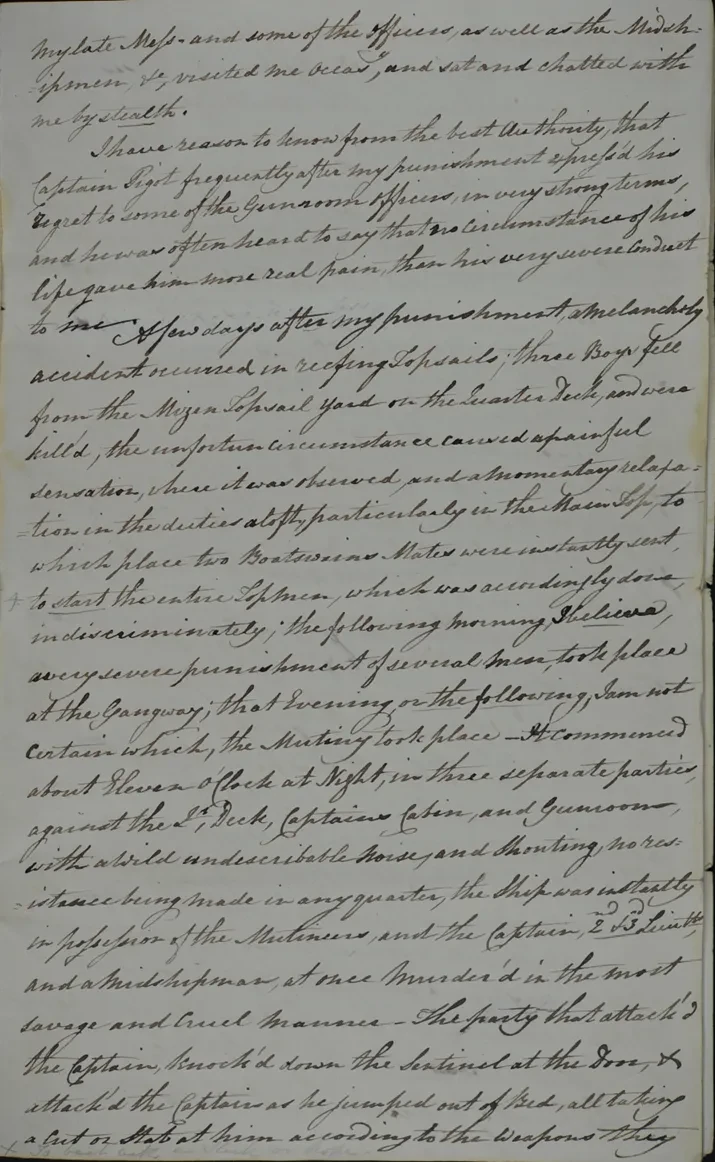 my late Mess- and some of the officers, as well as the Midsh-
=ipmen, &c, visited me Occasy, and sat and chatted with
me by stealth.
I have reason to know from the best Authority, that
Captain Pigot frequently after my punishment express'd his
regret to some of the Gunroom officers, in very strong terms,
and he was often heard to say that no Circumstance of his
life gave him more real pain, than his very severe Conduct
to me A few days after my punishment, a melancholy
accident occurred in reefing Topsails; three Boys fell
from the Mizen Topsail yard on the Quarter Deck, and were
kill'd, the unfortun circumstance caused a painful
sensation, where it was observed, and a Momentary relaxa=
=tion in the duties aloft, particularly in the Main Top, to
which place two Boatswains Mates were instantly sent,
+ to start the entire Topmen, which was accordingly done,
indiscriminately; the following morning, I believe,
a very severe punishment of several Men, took place
at the Gangway; that Evening or the following, I am not
Certain which, the Mutiny took place - It commenced
about Eleven o'Clock at Night, in three separate parties,
against the Qr, Deck, Captains Cabin, and Gunroom,
with a Wild undescribable Noise, and Shouting, no res=
=istance being made in any quarter, the Ship was instantly
in possession of the Mutineers, and the Captain, 2nd & 3rd Lieutts,
and a Midshipman, at once Murder'd in the most
savage and Cruel Manner - The party that attack'd
the Captain, knock'd down the Sentinel at the Door, &
attack'd the Captain as he jumped out of Bed, all taking
a Cut or Stab at him according to the Weapons they